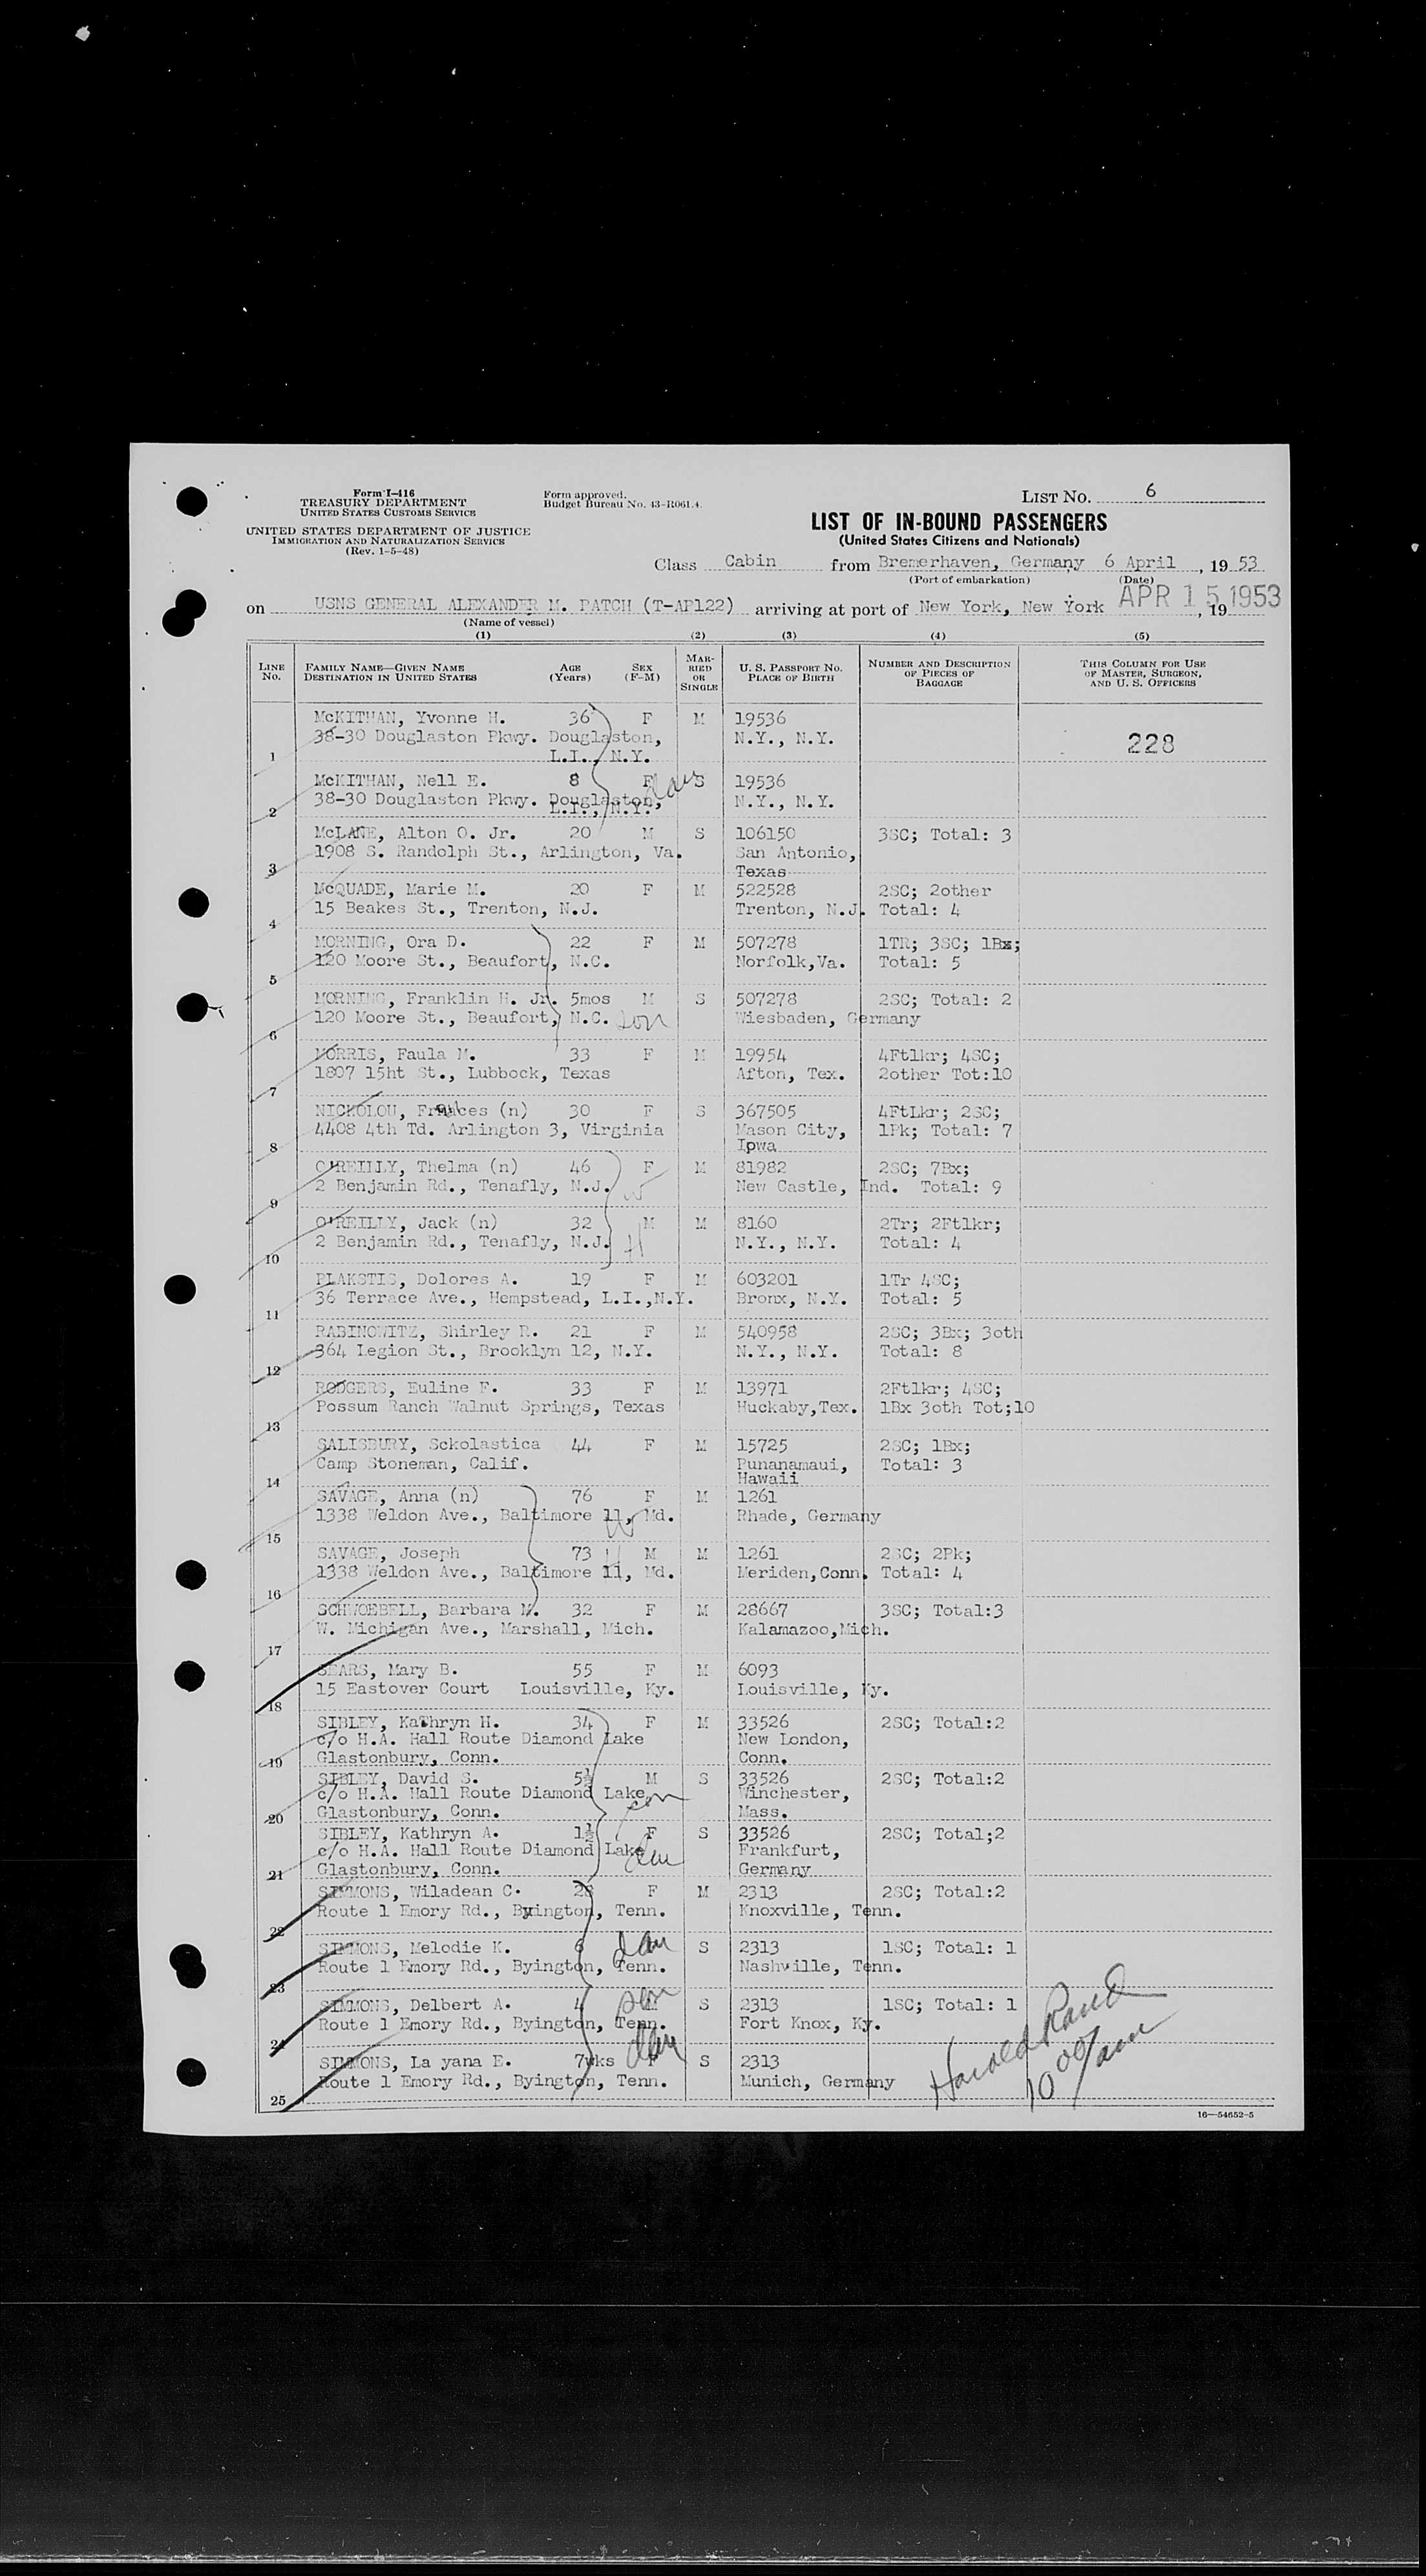 Form I-416
TREASURY DEPARTMENT
UNITED STATES CUSTOMS SERVICE
UNITED STATES DEPARTMENT OF JUSTICE
IMMIGRATION AND NATURALIZATION SERVICE
(Rev. 1-5-48)
Form approved.
Budget Bureau No. 43-R061.4.
LIST NO. 6
LIST OF IN-BOUND PASSENGERS
(United States Citizens and Nationals)
Class Cabin from Bremerhaven, Germany 6 April, 19 53
(Port of embarkation) (Date)
on USNS GENERAL ALEXANDER M. PATCH (T-AP122) arriving at port of New York, New York APR 15 1953, 19
(Name of vessel)
(1) (2) (3) (4) (5)
LINE No. FAMILY NAME—GIVEN NAME DESTINATION IN UNITED STATES AGE (Years) SEX (F-M) MARRIED OR SINGLE U. S. PASSPORT NO. PLACE OF BIRTH NUMBER AND DESCRIPTION OF PIECES OF BAGGAGE THIS COLUMN FOR USE OF MASTER, SURGEON, AND U. S. OFFICERS
McKITHAN, Yvonne H. 36 F M 19536
38-30 Douglaston Pkwy. Douglaston, N.Y., N.Y. 228
1 L.I., N.Y.
McKITHAN, Nell E. 8 F dau S 19536
38-30 Douglaston Pkwy. Douglaston, N.Y., N.Y.
2 L.I., N.Y.
McLANE, Alton O. Jr. 20 M S 106150 3SC; Total: 3
1908 S. Randolph St., Arlington, Va. San Antonio,
3 Texas
McQUADE, Marie M. 20 F M 522528 2SC; 2other
15 Beakes St., Trenton, N.J. Trenton, N.J. Total: 4
4
MORNING, Ora D. 22 F M 507278 1TR; 3SC; 1Bx;
120 Moore St., Beaufort, N.C. Norfolk,Va. Total: 5
5
MORNING, Franklin H. Jr. 5mos M S 507278 2SC; Total: 2
120 Moore St., Beaufort, N.C. son Wiesbaden, Germany
6
MORRIS, Faula M. 33 F M 19954 4Ftlkr; 4SC;
1807 15ht St., Lubbock, Texas Afton, Tex. 2other Tot:10
7
NICKOLOU, Frances (n) 30 F S 367505 4FtLkr; 2SC;
4408 4th Td. Arlington 3, Virginia Mason City, 1Pk; Total: 7
8 Ipwa
O'REILLY, Thelma (n) 46 F M 81982 2SC; 7Bx;
2 Benjamin Rd., Tenafly, N.J. W New Castle, Ind. Total: 9
9
O'REILLY, Jack (n) 32 M M 8160 2Tr; 2Ftlkr;
2 Benjamin Rd., Tenafly, N.J. H N.Y., N.Y. Total: 4
10
PLAKSTIS, Dolores A. 19 F M 603201 1Tr 4SC;
36 Terrace Ave., Hempstead, L.I.,N.Y. Bronx, N.Y. Total: 5
11
RABINOWITZ, Shirley R. 21 F M 540958 2SC; 3Bx; 3oth
364 Legion St., Brooklyn 12, N.Y. N.Y., N.Y. Total: 8
12
RODGERS, Euline F. 33 F M 13971 2Ftlkr; 4SC;
Possum Ranch Walnut Springs, Texas Huckaby,Tex. 1Bx 3oth Tot;10
13
SALISBURY, Sckolastica 44 F M 15725 2SC; 1Bx;
Camp Stoneman, Calif. Punanamaui, Total: 3
14 Hawaii
SAVAGE, Anna (n) 76 F M 1261
1338 Weldon Ave., Baltimore 11, Md. W Rhade, Germany
15
SAVAGE, Joseph 73 H M M 1261 2SC; 2Pk;
1338 Weldon Ave., Baltimore 11, Md. Meriden,Conn. Total: 4
16
SCHWOEBELL, Barbara M. 32 F M 28667 3SC; Total:3
W. Michigan Ave., Marshall, Mich. Kalamazoo,Mich.
17
SEARS, Mary B. 55 F M 6093
15 Eastover Court Louisville, Ky. Louisville, Ky.
18
SIBLEY, Kathryn H. 34 F M 33526 2SC; Total:2
c/o H.A. Hall Route Diamond Lake New London,
19 Glastonbury, Conn. Conn.
SIBLEY, David S. 5½ M S 33526 2SC; Total:2
c/o H.A. Hall Route Diamond Lake son Winchester,
20 Glastonbury, Conn. Mass.
SIBLEY, Kathryn A. 1½ F S 33526 2SC; Total;2
c/o H.A. Hall Route Diamond Lake dau Frankfurt,
21 Glastonbury, Conn. Germany
SIMMONS, Wiladean C. 28 F M 2313 2SC; Total:2
Route 1 Emory Rd., Byington, Tenn. Knoxville, Tenn.
22
SIMMONS, Melodie K. 6 dau S 2313 1SC; Total: 1
Route 1 Emory Rd., Byington, Tenn. Nashville, Tenn.
23
SIMMONS, Delbert A. 4 son M S 2313 1SC; Total: 1
Route 1 Emory Rd., Byington, Tenn. Fort Knox, Ky.
24
SIMMONS, La yana E. 7wks dau F S 2313
Route 1 Emory Rd., Byington, Tenn. Munich, Germany
25
Harold Rand
10 00/am
16—54652-5